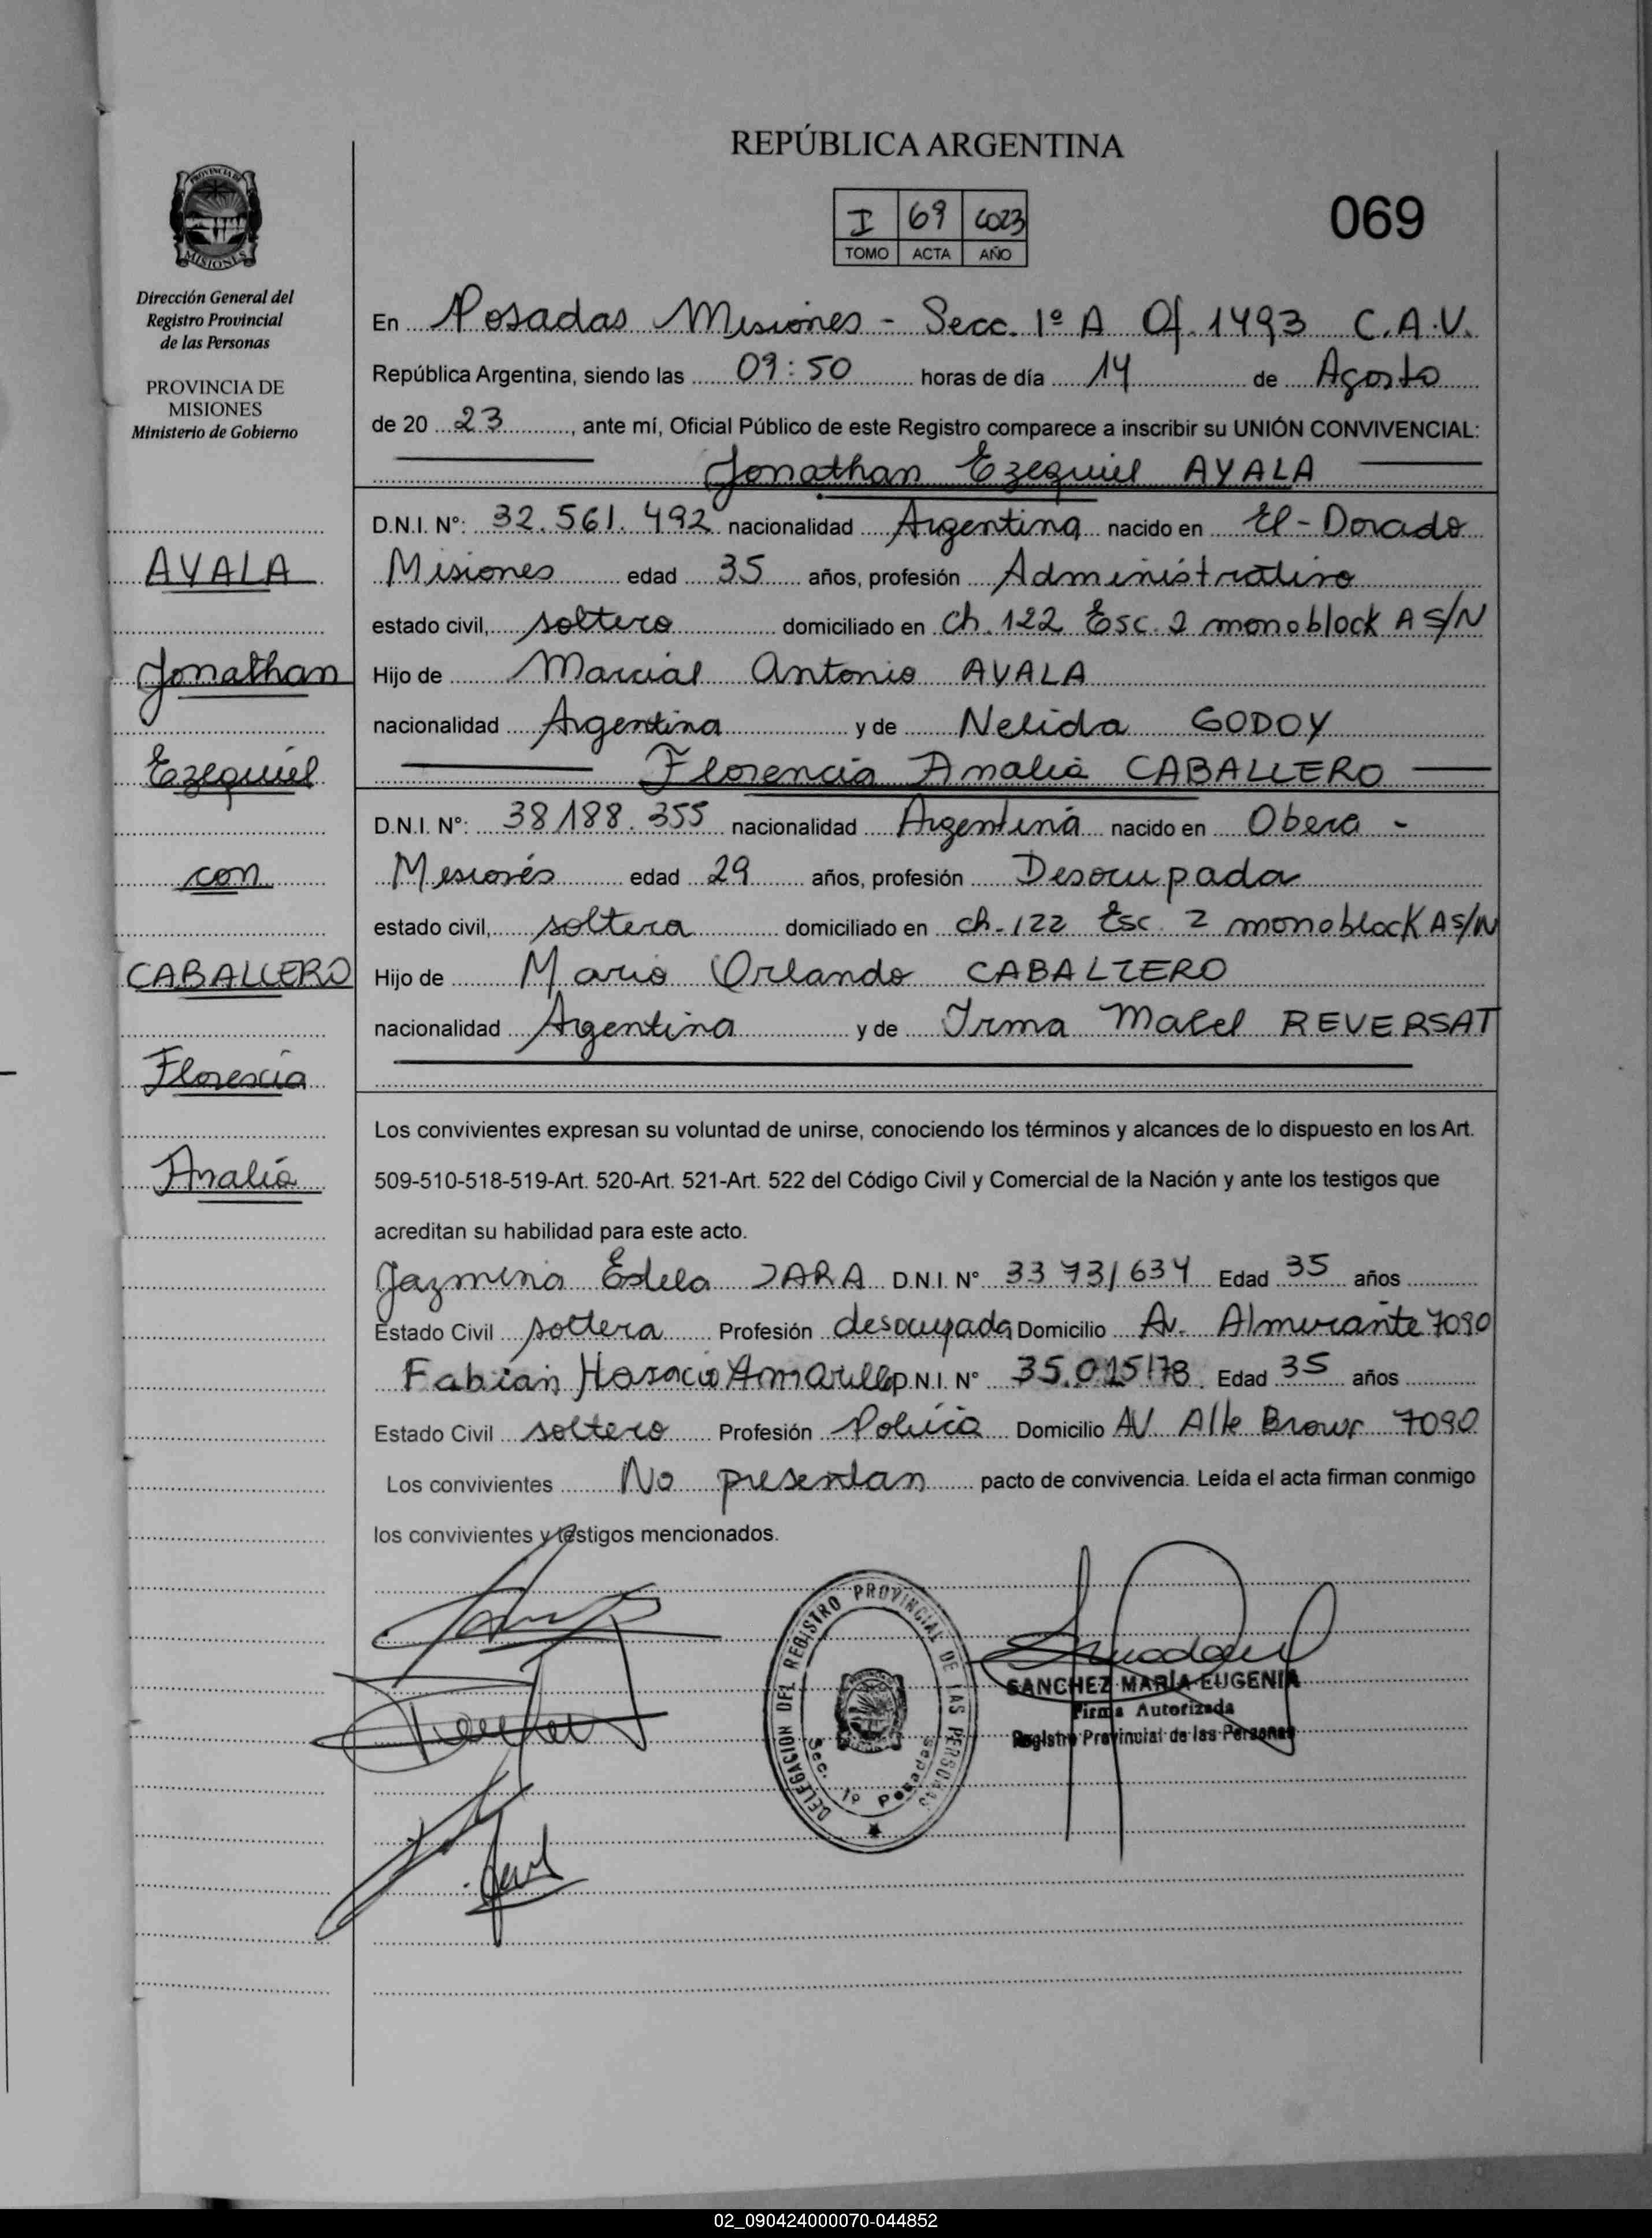 REPÚBLICA ARGENTINA
I 69 2023
TOMO ACTA AÑO
069
PROVINCIA DE
MISIONES
Dirección General del
Registro Provincial
de las Personas
PROVINCIA DE
MISIONES
Ministerio de Gobierno
AYALA
Jonathan
Ezequiel
con
CABALLERO
Florencia
Analia
En Posadas Misiones - Secc. 1º A Of. 1493 C.A.V.
República Argentina, siendo las 09:50 horas de día 14 de Agosto
de 20 23, ante mí, Oficial Público de este Registro comparece a inscribir su UNIÓN CONVIVENCIAL:
Jonathan Ezequiel AYALA
D.N.I. N°: 32.561.492 nacionalidad Argentina nacido en El-Dorado
Misiones edad 35 años, profesión Administrativo
estado civil, soltero domiciliado en Ch. 122 Esc. 2 monoblock A S/N
Hijo de Marcial Antonio AYALA
nacionalidad Argentina y de Nelida GODOY
Florencia Analia CABALLERO
D.N.I. N°: 38188.355 nacionalidad Argentina nacido en Obera -
Misiones edad 29 años, profesión Desocupada
estado civil, soltera domiciliado en ch-122 Esc. 2 monoblock A S/N
Hijo de Mario Orlando CABALLERO
nacionalidad Argentina y de Irma Mabel REVERSAT
Los convivientes expresan su voluntad de unirse, conociendo los términos y alcances de lo dispuesto en los Art.
509-510-518-519-Art. 520-Art. 521-Art. 522 del Código Civil y Comercial de la Nación y ante los testigos que
acreditan su habilidad para este acto.
Jazmina Estela JARA D.N.I. N° 33 731634 Edad 35 años
Estado Civil soltera Profesión desocupada Domicilio Av. Almirante 7090
Fabian Horacio Amarillo D.N.I. N° 35.015178 Edad 35 años
Estado Civil soltero Profesión Policia Domicilio AV. Alte Brown 7090
Los convivientes No presentan pacto de convivencia. Leída el acta firman conmigo
los convivientes y testigos mencionados.
DELEGACION DEL REGISTRO PROVINCIAL DE LAS PERSONAS
Sec. 1º Posadas
SANCHEZ MARÍA EUGENIA
Firma Autorizada
Registro Provincial de las Personas
02_090424000070-044852